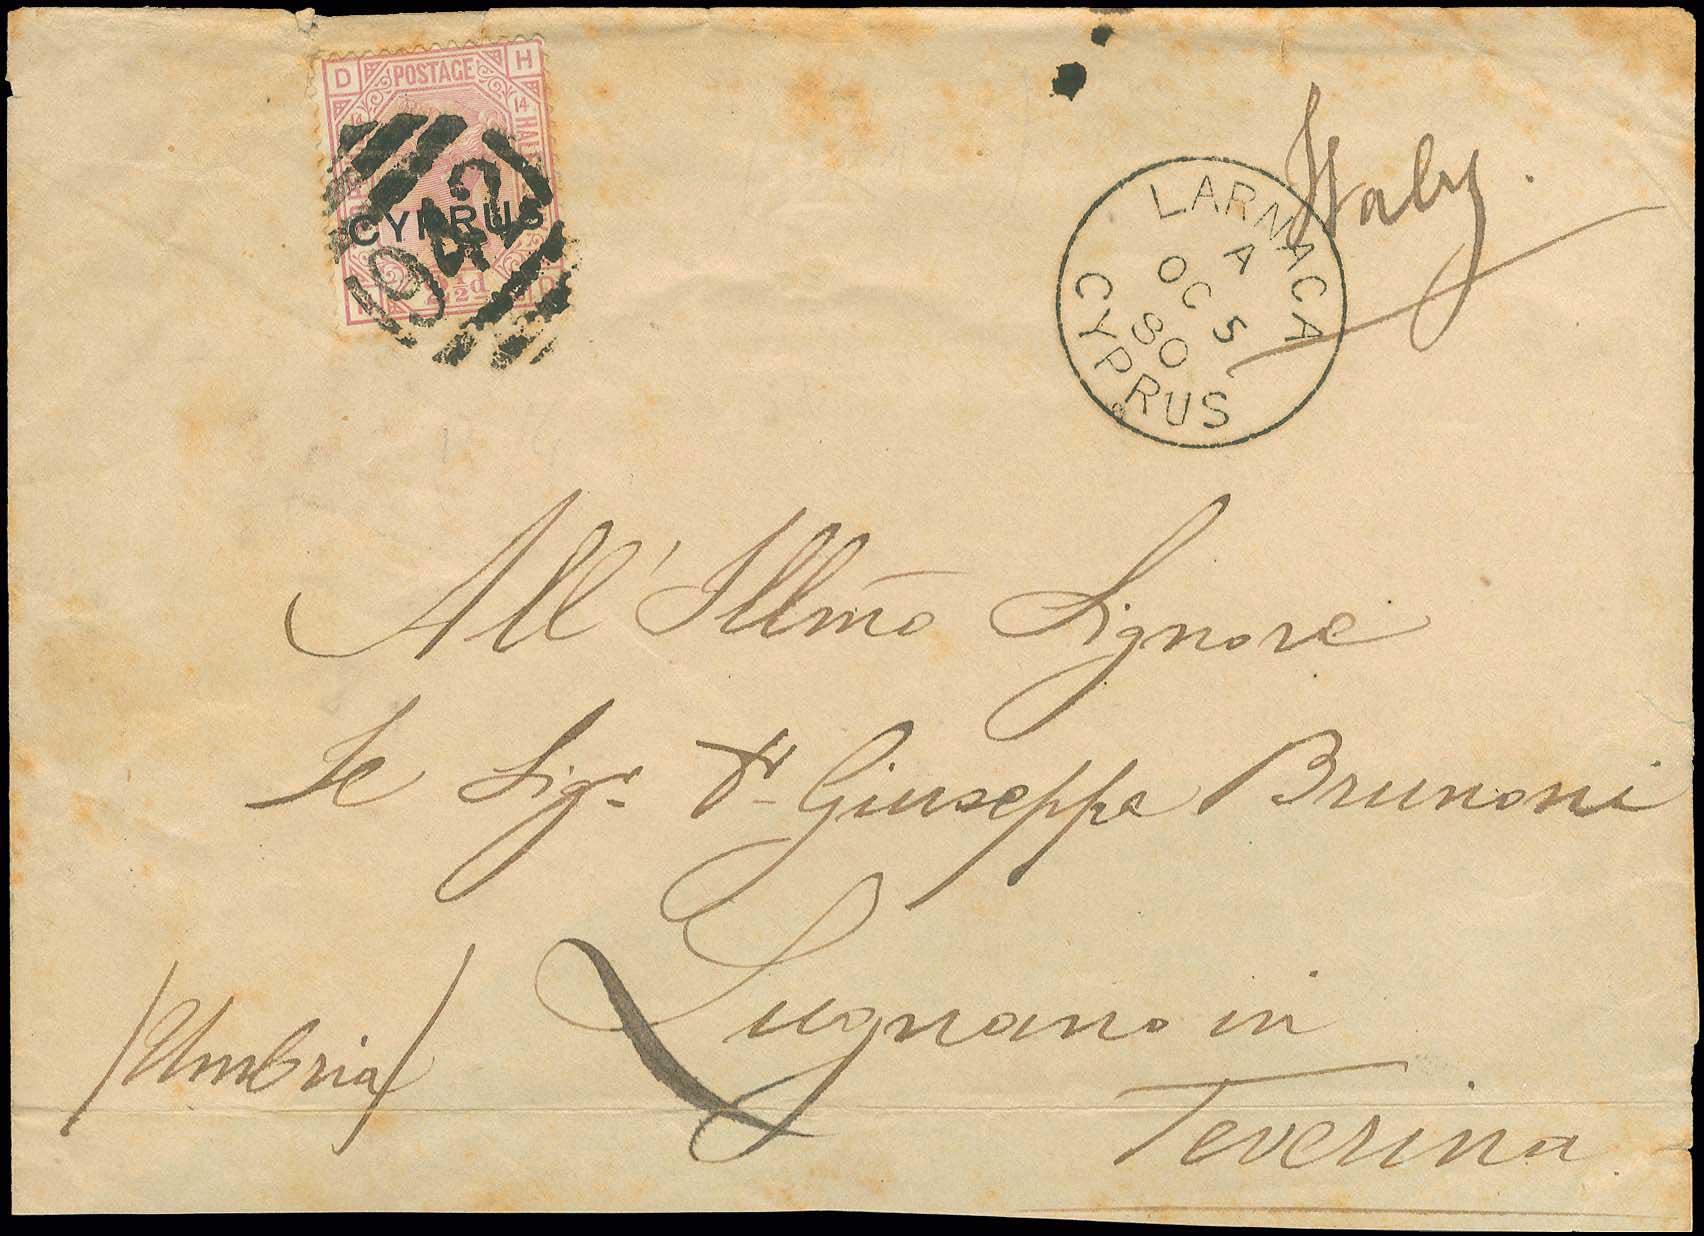 D POSTAGE H
14 14
HALF
CYPRUS
942
2½d
LARNACA
A
OC 5
80
CYPRUS
Italy.
All' Illmo Signore
Le Sigr. Dr Giuseppe Brunoni
Lugnano in
Teverina
/Umbria/